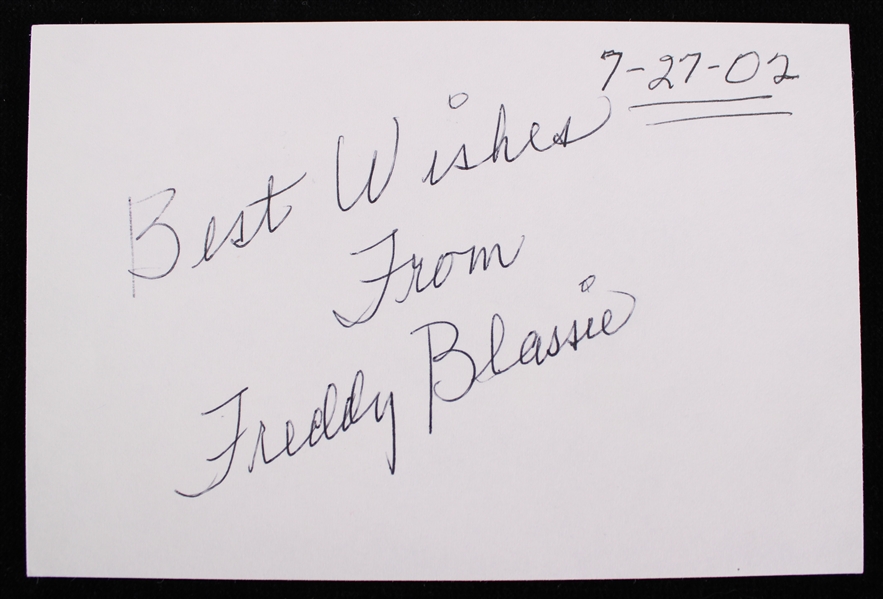 7-27-02
Best Wishes
From
Freddy Blassie